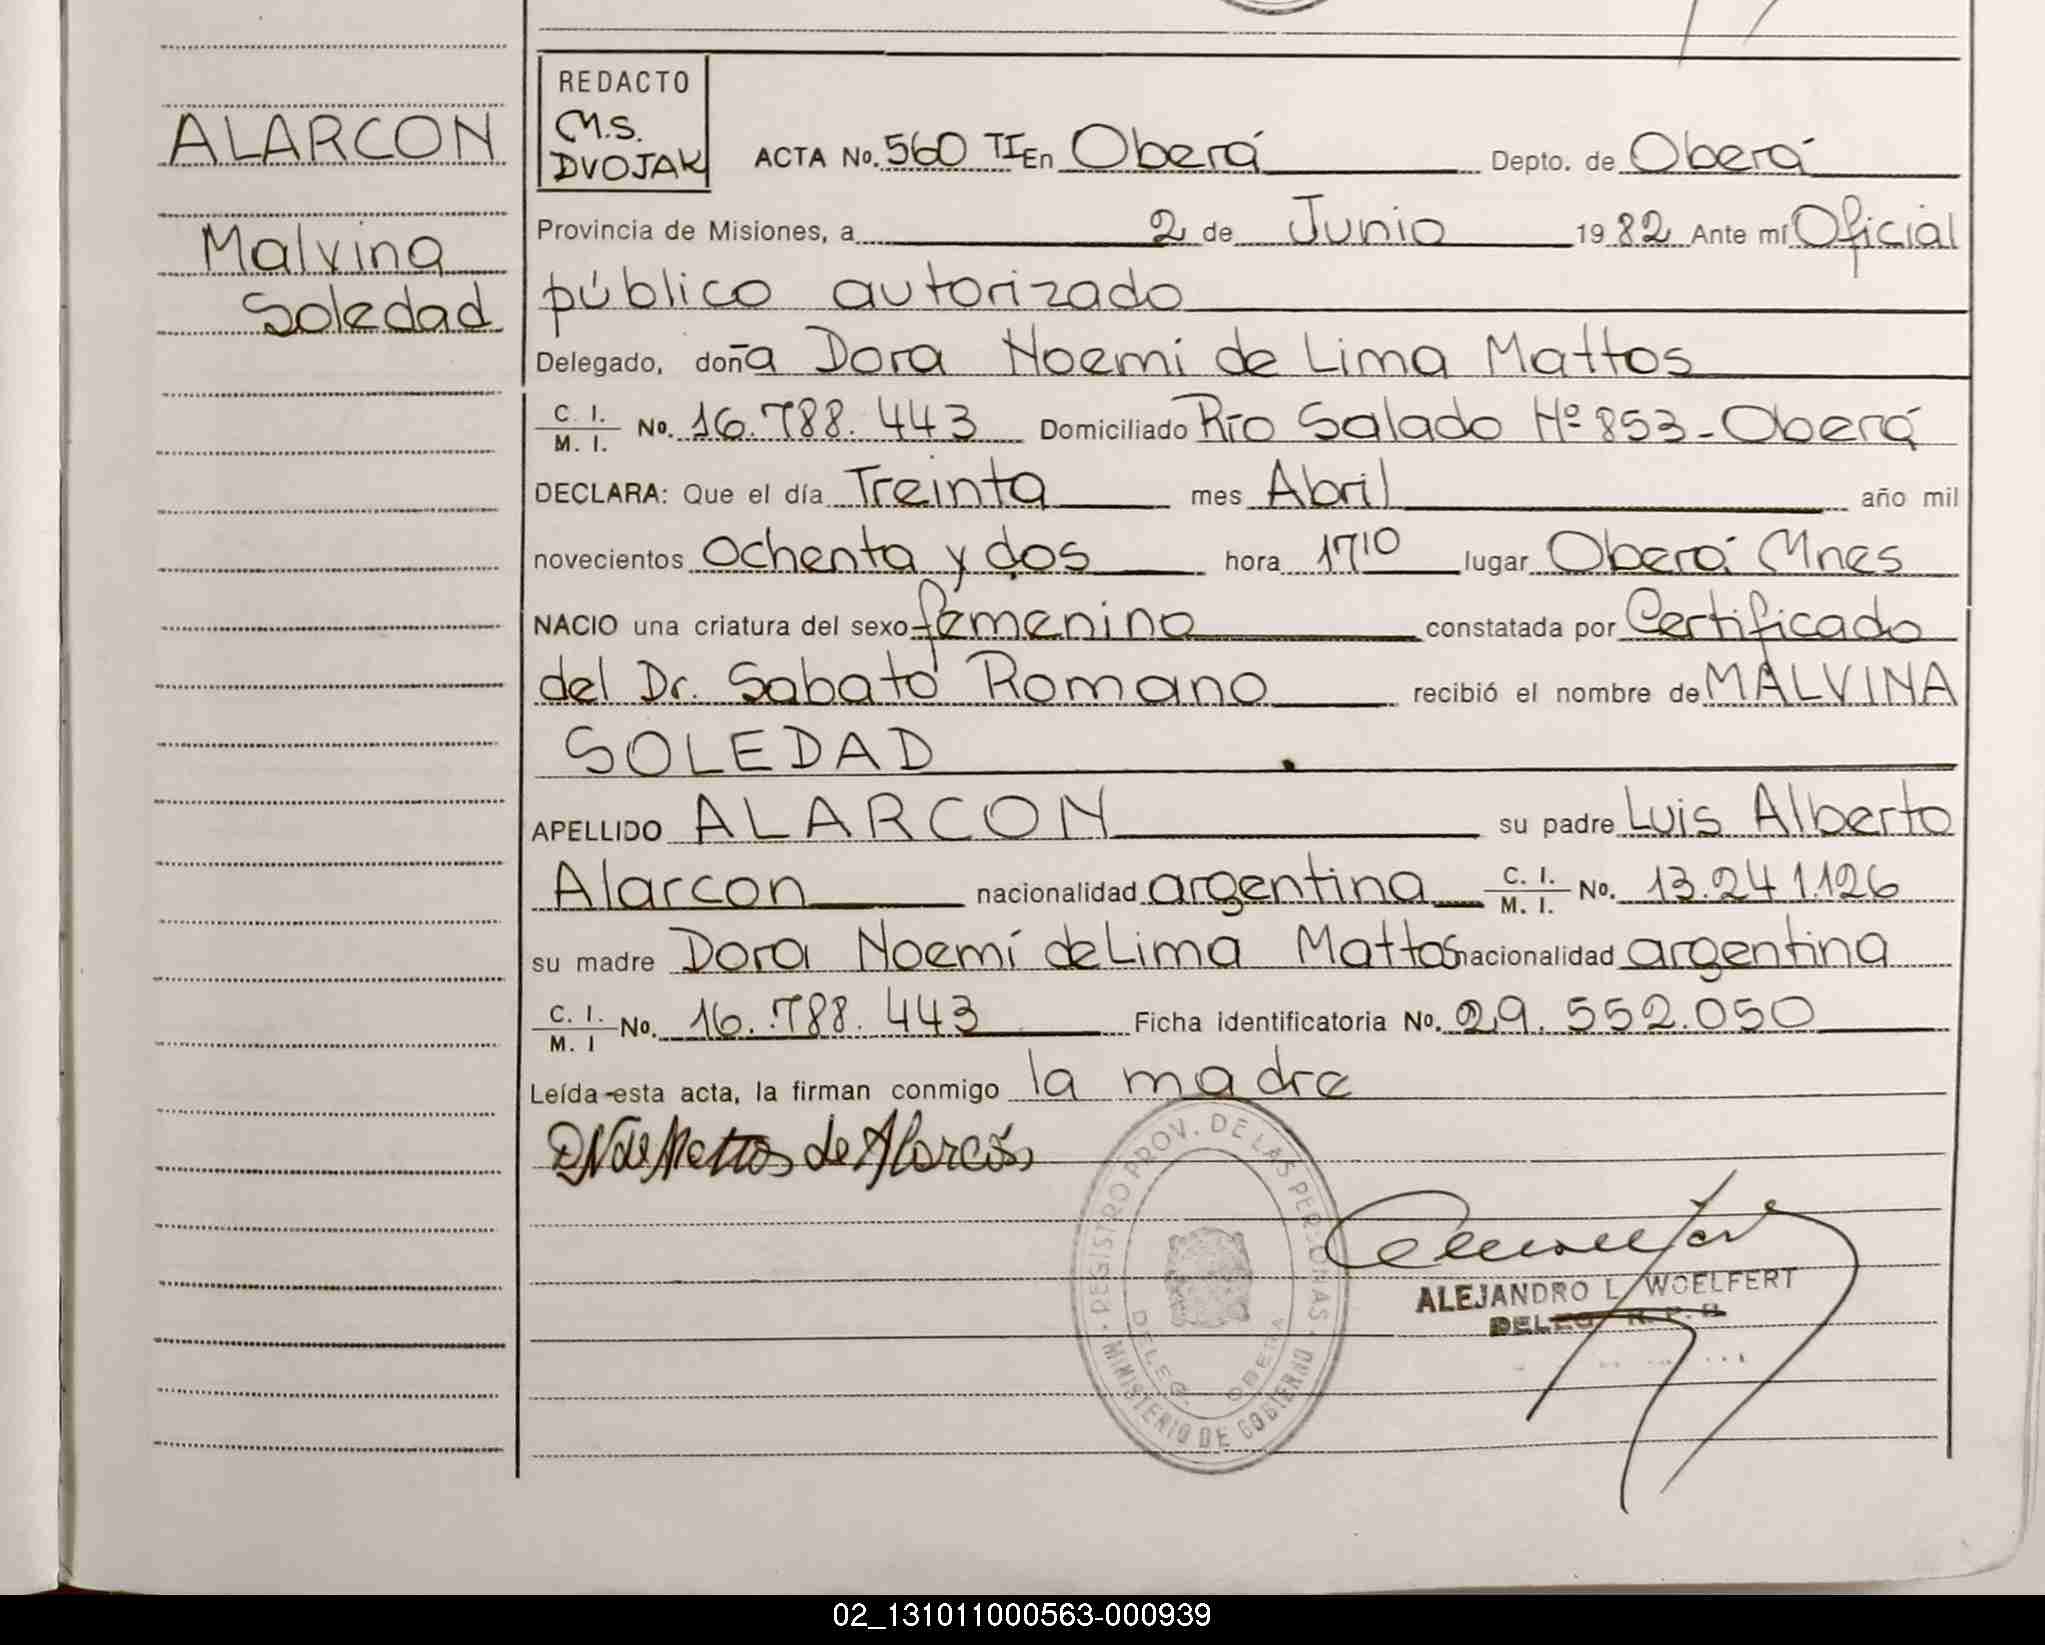 ALARCON
Malvina
Soledad
REDACTO
M.S.
DVOJAK
ACTA No. 560 TI En Oberá Depto. de Oberá
Provincia de Misiones, a 2 de Junio 1982 Ante mí Oficial
público autorizado
Delegado, doña Dora Noemí de Lima Mattos
C. I. M. I. No. 16.788.443 Domiciliado Río Salado Nº 853-Oberá
DECLARA: Que el día Treinta mes Abril año mil
novecientos Ochenta y dos hora 17 10 lugar Oberá Mnes
NACIO una criatura del sexo femenino constatada por Certificado
del Dr. Sabato Romano recibió el nombre de MALVINA
SOLEDAD
APELLIDO ALARCON su padre Luis Alberto
Alarcon nacionalidad argentina C. I. M. I. No. 13.241.126
su madre Dora Noemí de Lima Mattos nacionalidad argentina
C. I. M. I No. 16.788.443 Ficha identificatoria No. 29.552.050
Leída esta acta, la firman conmigo la madre
DN de Mattos de Alarcón
REGISTRO PROV. DE LAS PERSONAS
MINISTERIO DE GOBIERNO
DELEG. OBERA
ALEJANDRO L. WOELFERT
DELEG. R. P. P.
02_131011000563-000939